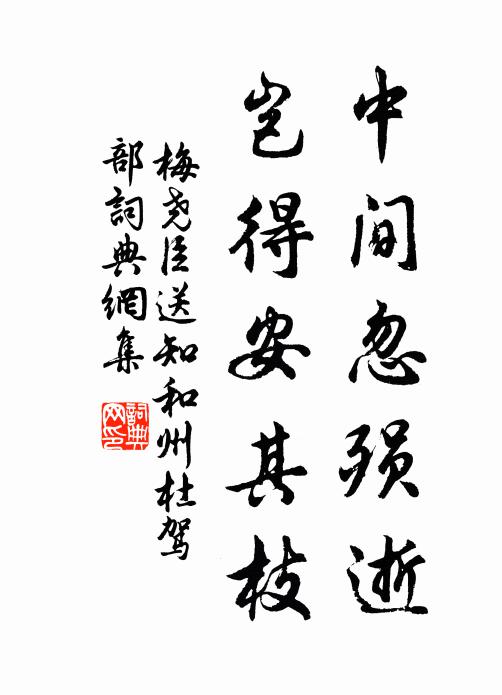 中间忽殒逝
岂得安其枝
梅尧臣送知和州杜驾
部詞典網集
詞典网印